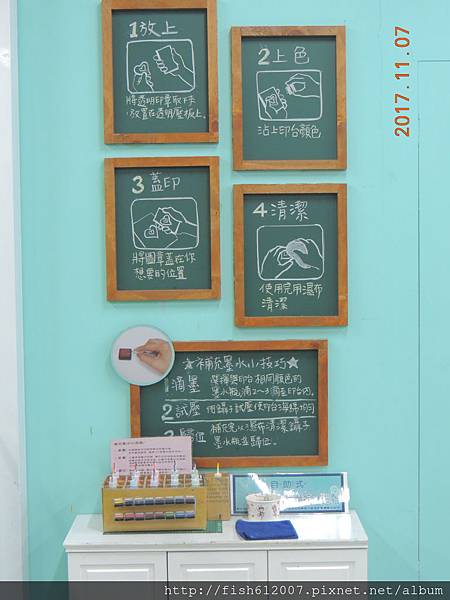 1放上
將透明印章取下
放置在透明壓板上。
2上色
沾上印台顏色
3蓋印
將圖章蓋在你
想要的位置
4清潔
使用完用濕布
清潔
★補充墨水小技巧★
1滴墨 選擇與印台相同顏色的
墨水瓶,滴2~3滴至印台內。
2試壓 用鑷子試壓使印台海綿均勻
3歸位 補充完以濕布清潔鑷子
墨水瓶並歸位。
自助式
2017.11.07
http://fish612007.pixnet.net/album